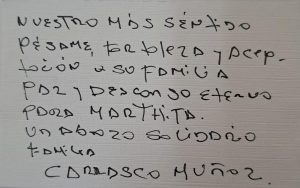 NUESTRO MÁS SENTIDO
PÉSAME, FORTALEZA Y ACEP-
TACIÓN A SU FAMILIA
PAZ Y DESCANSO ETERNO
PARA MARTHITA.
UN ABRAZO SOLIDARIO
FAMILIA
CARRASCO MUÑOZ.